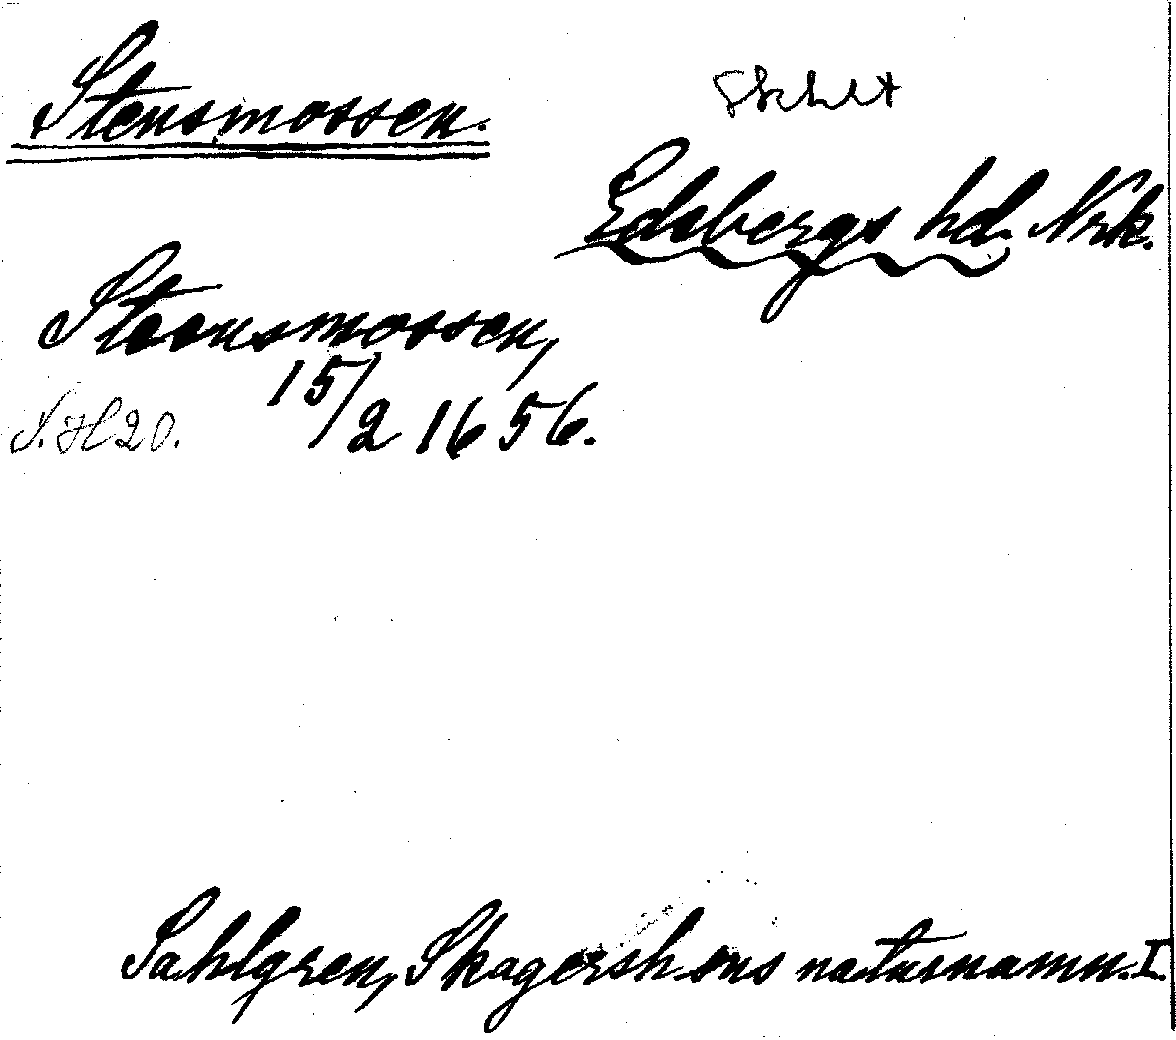 Stensmossen.
Edsbergs hd. Nrk.
Steensmossen,
15/2 1656.
N. H 20.
Sahlgren, Skagershults naturnamn. I.